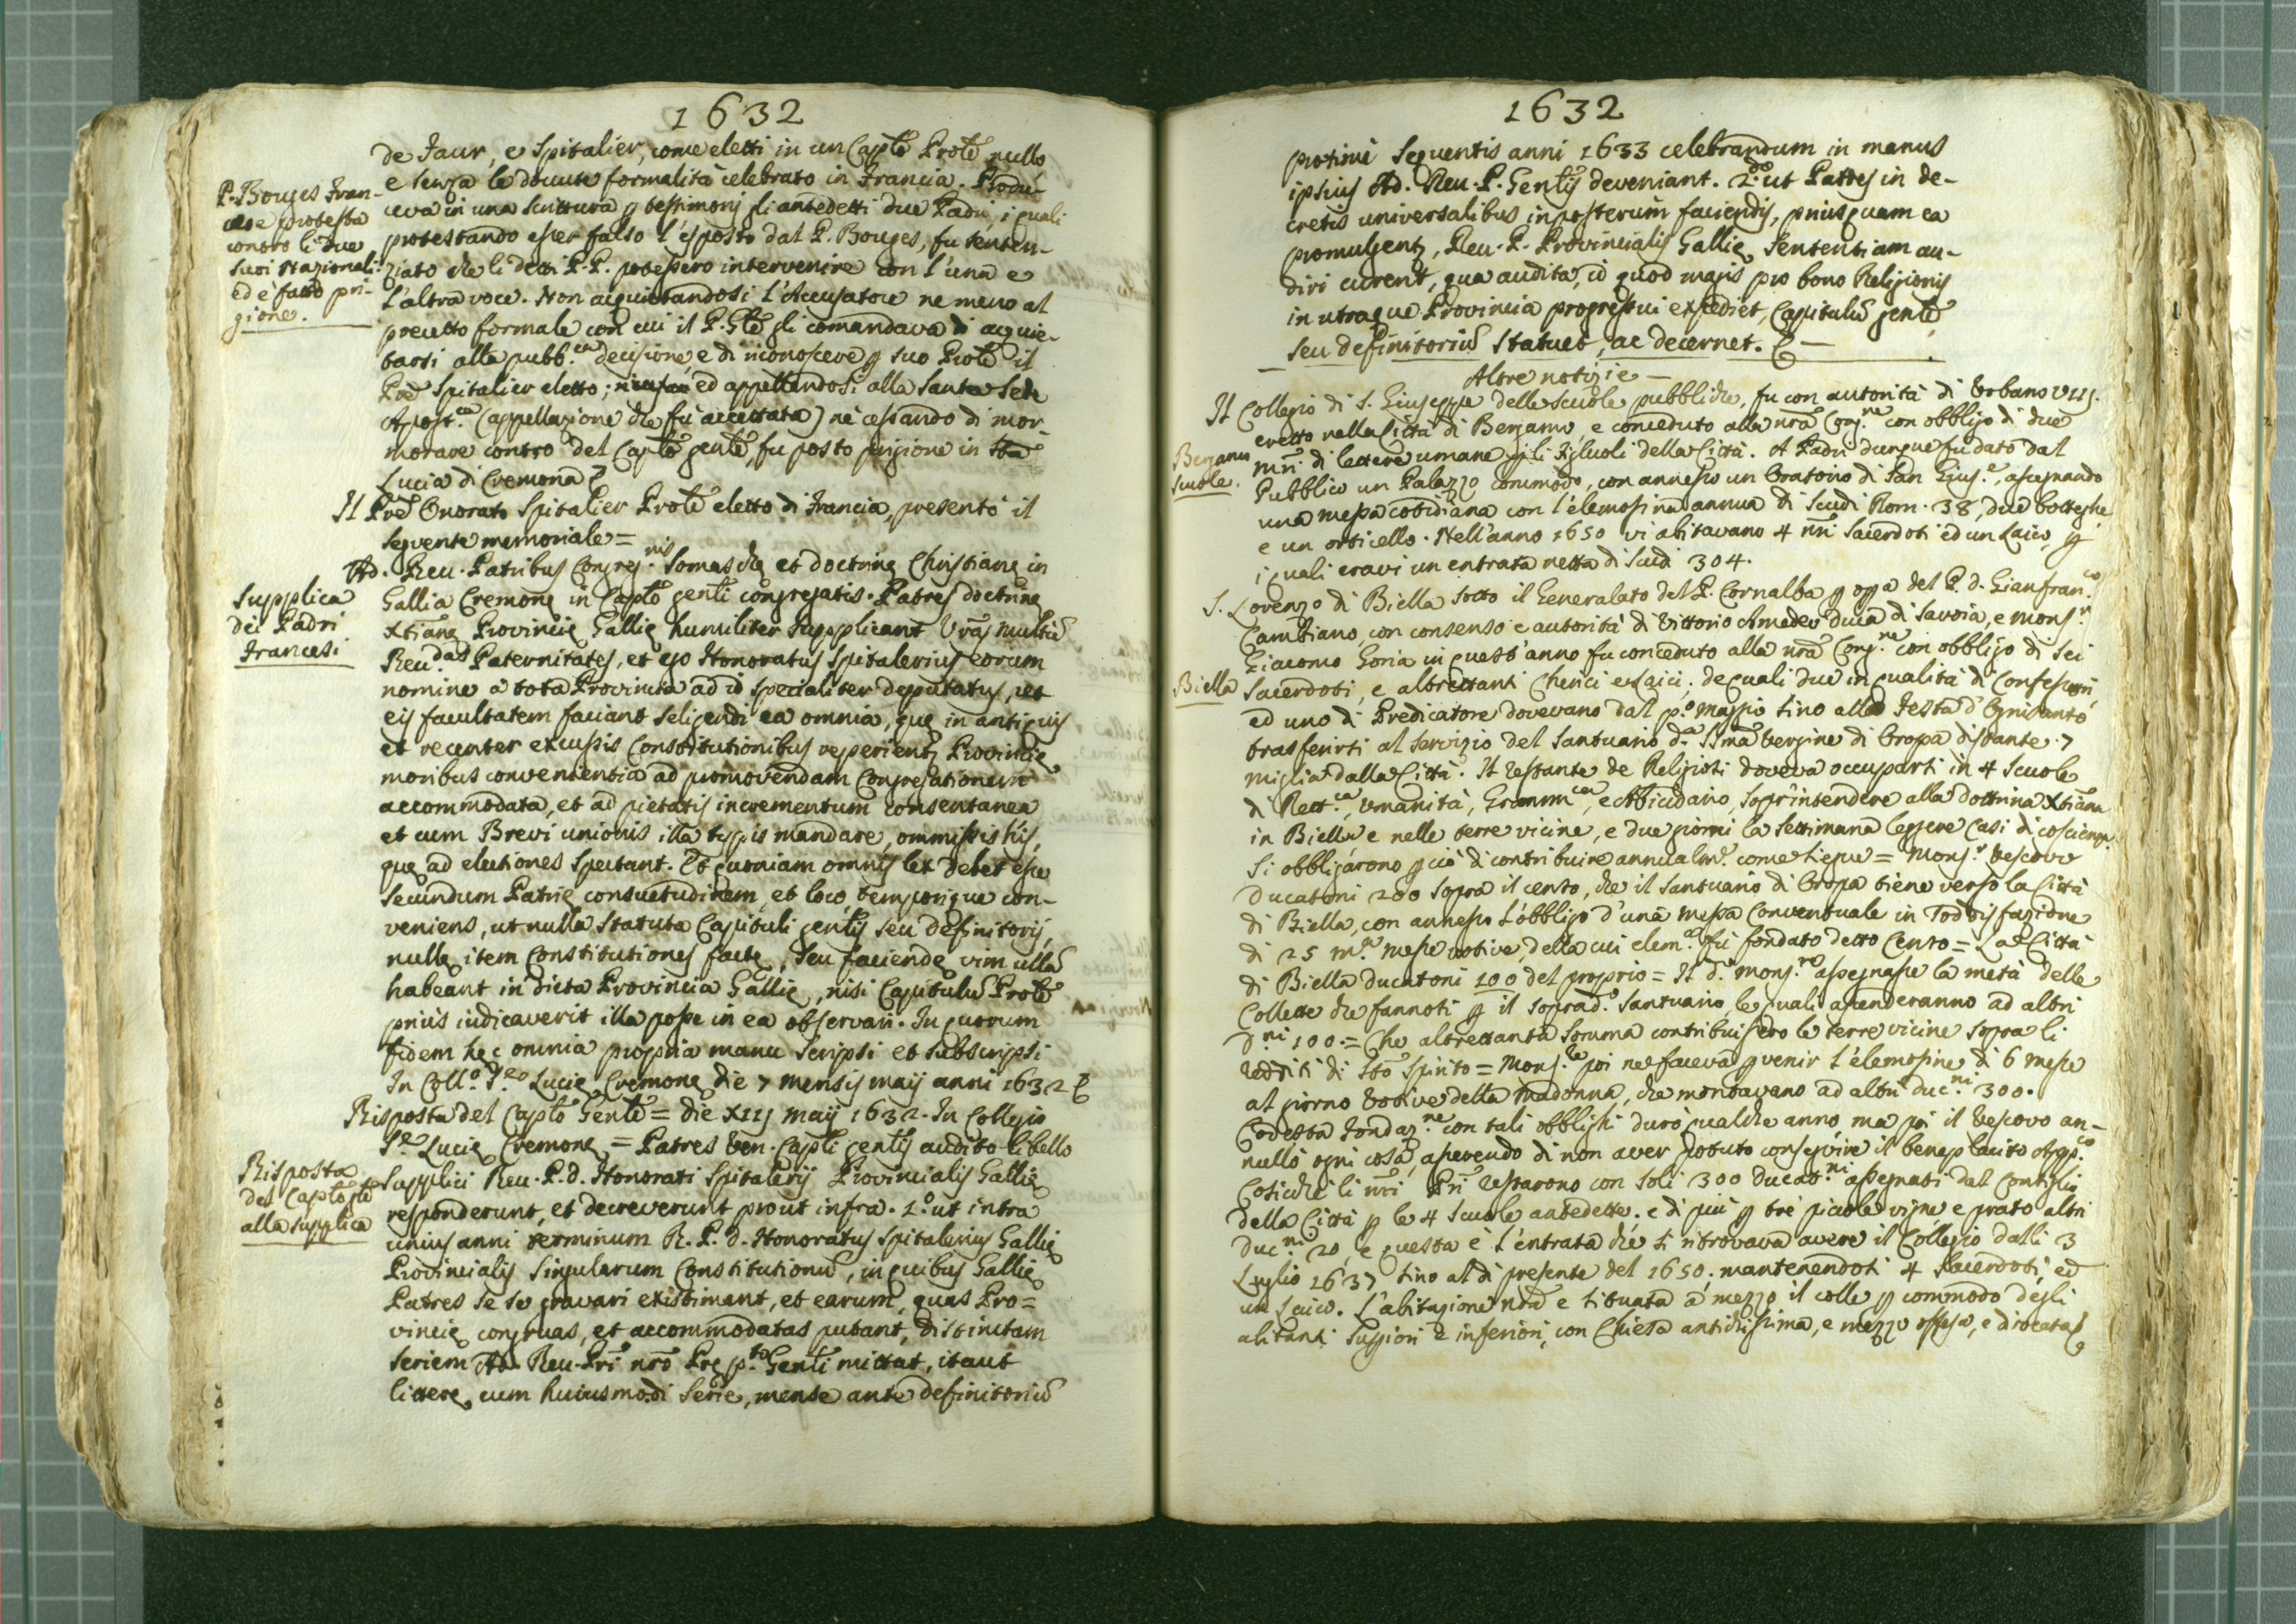 1632
de Jaur, e Spitalier, come eletti in un Caplo Prole nullo
e senza le dovute formalità celebrato in Francia. Produ-
ceva in una scrittura p testimonj gli antedetti due Padri, i quali
protestando esser falso l'esposto dal P. Bouges, fu senten-
ziato che li detti P.P. potessero intervenire con l'una e
l'altra voce. Non acquietandosi l'Accusatore ne meno al
precetto formale con cui il P. Gle gli comandava di acquie-
tarsi alla pubb.ca decisione, e di riconoscere p suo Prole il
Pre Spitalier eletto; ed appellandosi alla Santa Sede
Apost.ca (appellazione che fù accettata) nè cessando di mor-
morare contro del Caplo gente, fu posto prigione in Sta
Lucia di Cremona
P. Bouges Fran-
cese protesta
contro li due
suoi Nazionali
ed è fatto pri-
gione.
Il Pre Onorato Spitalier Prole eletto di Francia, presentò il
seguente memoriale =
Ad. Reu. Patribus Congreg.nis Somaschę et doctrinę Christianę in
Gallia Cremonę in Caplo genli congregatis. Patres doctrinę
Xtianę Provincię Gallię humiliter supplicant Vras multu
Reu.das Paternitates, et ego Honoratus Spitalerius eorum
nomine a tota Provincia ad id specialiter deputatus, ut
eis facultatem faciant seligendi ea omnia, quę in antiquis
et recenter excussis Constitutionibus reperient, Provincię
moribus convenientia ad promovendam Congregationem
accommodata, et ad pietatis incrementum consentanea
et cum Brevi unionis illa typis mandare, ommissis his,
quę ad electiones spectant. Et quoniam omnis lex debet esse
secundum Patrię consuetudinem, et loco, temporique con-
veniens, ut nulla statuta Capituli genlis seu definitorij,
nullę item Constitutiones factę, seu faciendę vim ulla
habeant in dicta Provincia Gallię, nisi Capitulu Prole
prius iudicaverit illa posse in ea observari. In quorum
fidem hęc omnia propria manu scripsi et subscripsi
In Coll.o S.ę Lucię Cremonę die 7 mensis maij anni 1632
Supplica
dei Padri
Francesi
Risposta del Caplo Genle = die XIIJ maij 1632. In Collegio
S.ę Lucię Cremonę = Patres Ven. Capli genlis audito libello
supplici Reu. P. d. Honorati Spitalerij Provincialis Gallię
responderunt, et decreverunt prout infra. 1.o ut intra
unius anni terminum R. P. d. Honoratus Spitalerius Gallię
Provincialis singularum Constitutionu, in quibus Gallię
Patres se se gravari existimant, et earum, quas Pro=
vincię congruas, et accommodatas putant, distinctam
seriem Ad. Reu. Pri nro Prę p.to Genli mittat, itaut
litterę cum huiusmodi serie, mense ante definitoriu
Risposta
del Caplo gle
alla supplica
1632
protime sequentis anni 1633 celebrandum in manus
ipsius Ad. Reu. P. Genlis deveniant. 2.do ut Patres in de-
cretis universalibus inposterum faciendis, priusquam ea
promulgent, Reu. P. Provincialis Gallię sententiam au-
diri curent, qua audita, id quod magis pro bono Religionis
in utraque Provincia progressui expediet, Capitulu genle
seu definitoriu statuet, ac decernet.
Altre notizie
Il Collegio di S. Giuseppe delle scuole pubbliche, fu con autorità di Urbano VIIJ.
eretto nella Città di Bergamo, e conceduto alla nra Cong.ne con obbligo di due
mri di lettere umane p li Figluoli della Città. A Padri dunque fu dato dal
Pubblico un Palazzo commodo, con annesso un Oratorio di San Gius.e, assegnando
una messa cotidiana con l'elemosina annua di Scudi Rom. 38, due botteghe,
e un orticello. Nell'anno 1650 vi abitavano 4 nri Sacerdoti ed un Laico, p
i quali eravi un entrata netta di Scudi 304.
Bergamo
scuole.
S. Lorenzo di Biella sotto il Generalato del P. Cornalba p opa del P. d. Gianfran.co
Cambiano, con consenso e autorità di Vittorio Amedeo duca di Savoia, e Mons.r
Giacomo Goria in quest'anno fu conceduto alla nra Cong.ne con obbligo di sei
Sacerdoti, e altrettanti Cherici e Laici; de quali due in qualità di Confessori,
ed uno di Predicatore dovevano dal p.o Maggio sino alla Festa d'Ognisanto
trasferirsi al servizio del Santuario d.a SSma Vergine di Oropa distante 7
miglia dalla Città. Il restante de Religiosi doveva occuparsi in 4 scuole
di Rett.ca, Umanità, Gramm.ca, e Abbicidario, soprintendere alla dottrina Xtiana
in Biella e nelle terre vicine, e due giorni la settimana leggere Casi di coscienza.
Si obbligarono p ciò di contribuire annualm.e come siegue = Mons.r Vescovo
Ducatoni 200 sopra il cento, che il Santuario di Oropa tiene verso la Città
di Biella, con annesso l'obbligo d'una messa Conventuale in sodisfazione
di 25 m.a messe votive, della cui elem.a fù fondato detto Cento = La Città
di Biella ducatoni 100 del proprio = Il d.o Mons.re assegnasse la metà delle
Collette che fannosi p il soprad.o Santuario, le quali ascenderanno ad altri
D.ni 100. = Che altrettanta somma contribuissero le terre vicine sopra li
redditi di Sto Spirito = Mons.re poi ne faceva pvenir l'elemosine di 6 messe
al giorno Votive della Madonna, che montavano ad altri duc.ni 300.
Codesta Fondaz.ne con tali obblighi durò qualche anno, ma poi il Vescovo an-
nullò ogni cosa, asserendo di non aver potuto conseguire il beneplacito App.co
Cosicchè li nri Pri restarono con soli 300 Ducat.ni assegnati dal Consiglio
della Città p le 4 scuole antedette. e di più p tre piccole vigne e prato altri
duc.ni 20, e questa è l'entrata che si ritrovava avere il Collegio dalli 3
Luglio 1637 sino al dì presente del 1650. mantenendosi 4 Sacerdoti, ed
un Laico. L'abitazione nra è situata a mezzo il colle p commodo degli
abitanti supiori e inferiori, con Chiesa antichissima, e mezzo offesa, e dirocata
Biella